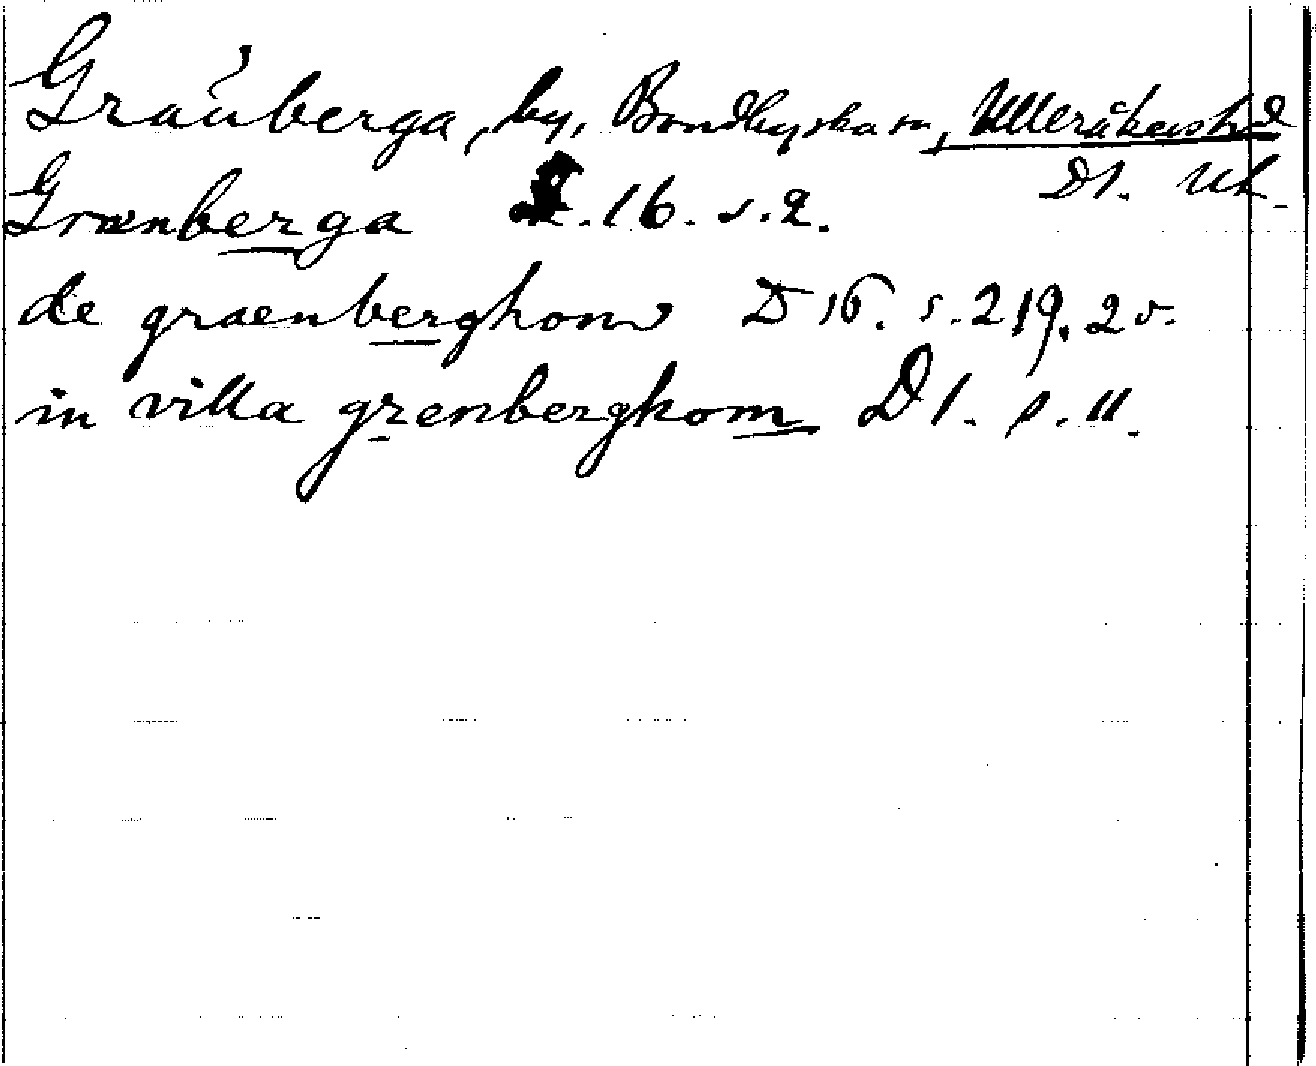 Granberga, by, Bondkyrka sn, Ulleråkers hd
D1. Uh.
Grænberga D.16. s.2.
de graenberghom D 16. s. 219. 2 v.
in villa grenberghom D1. s. 11.